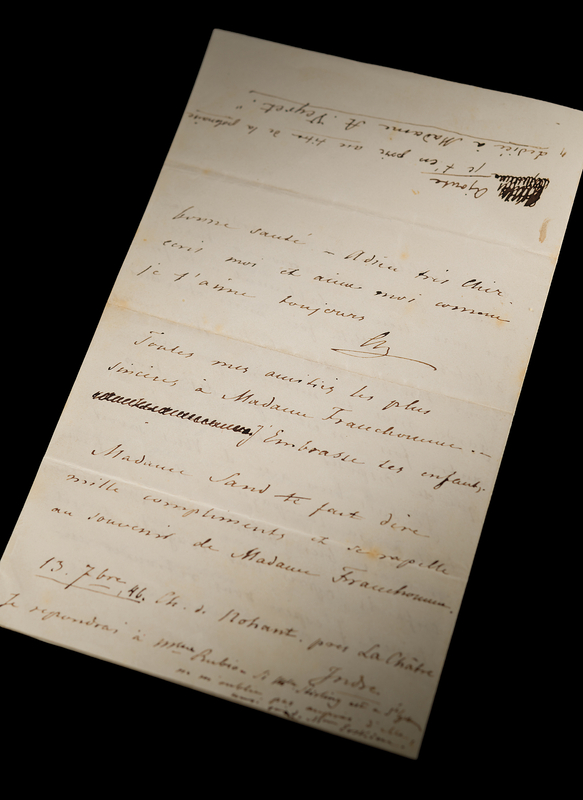 bonne santé – Adieu très cher
ecris moi et aime moi comme
je t'aime toujours
Ch
Toutes mes amitiés les plus
sincères à Madame Franchomme. –
J'Embrasse tes enfants.
Madame Sand te fait dire
mille compliments et se rapelle
au souvenir de Madame Franchomme.
13. 7bre, 46. Ch. de Nohant. près La Châtre
Indre.
Je repondrai à Mme Rubio Si Mlle Stirling est à
ne m'oublie pas auprès d'elle
Ajoute
je t'en prie au titre de la polonaise
dedié à Madame A. Veyret."